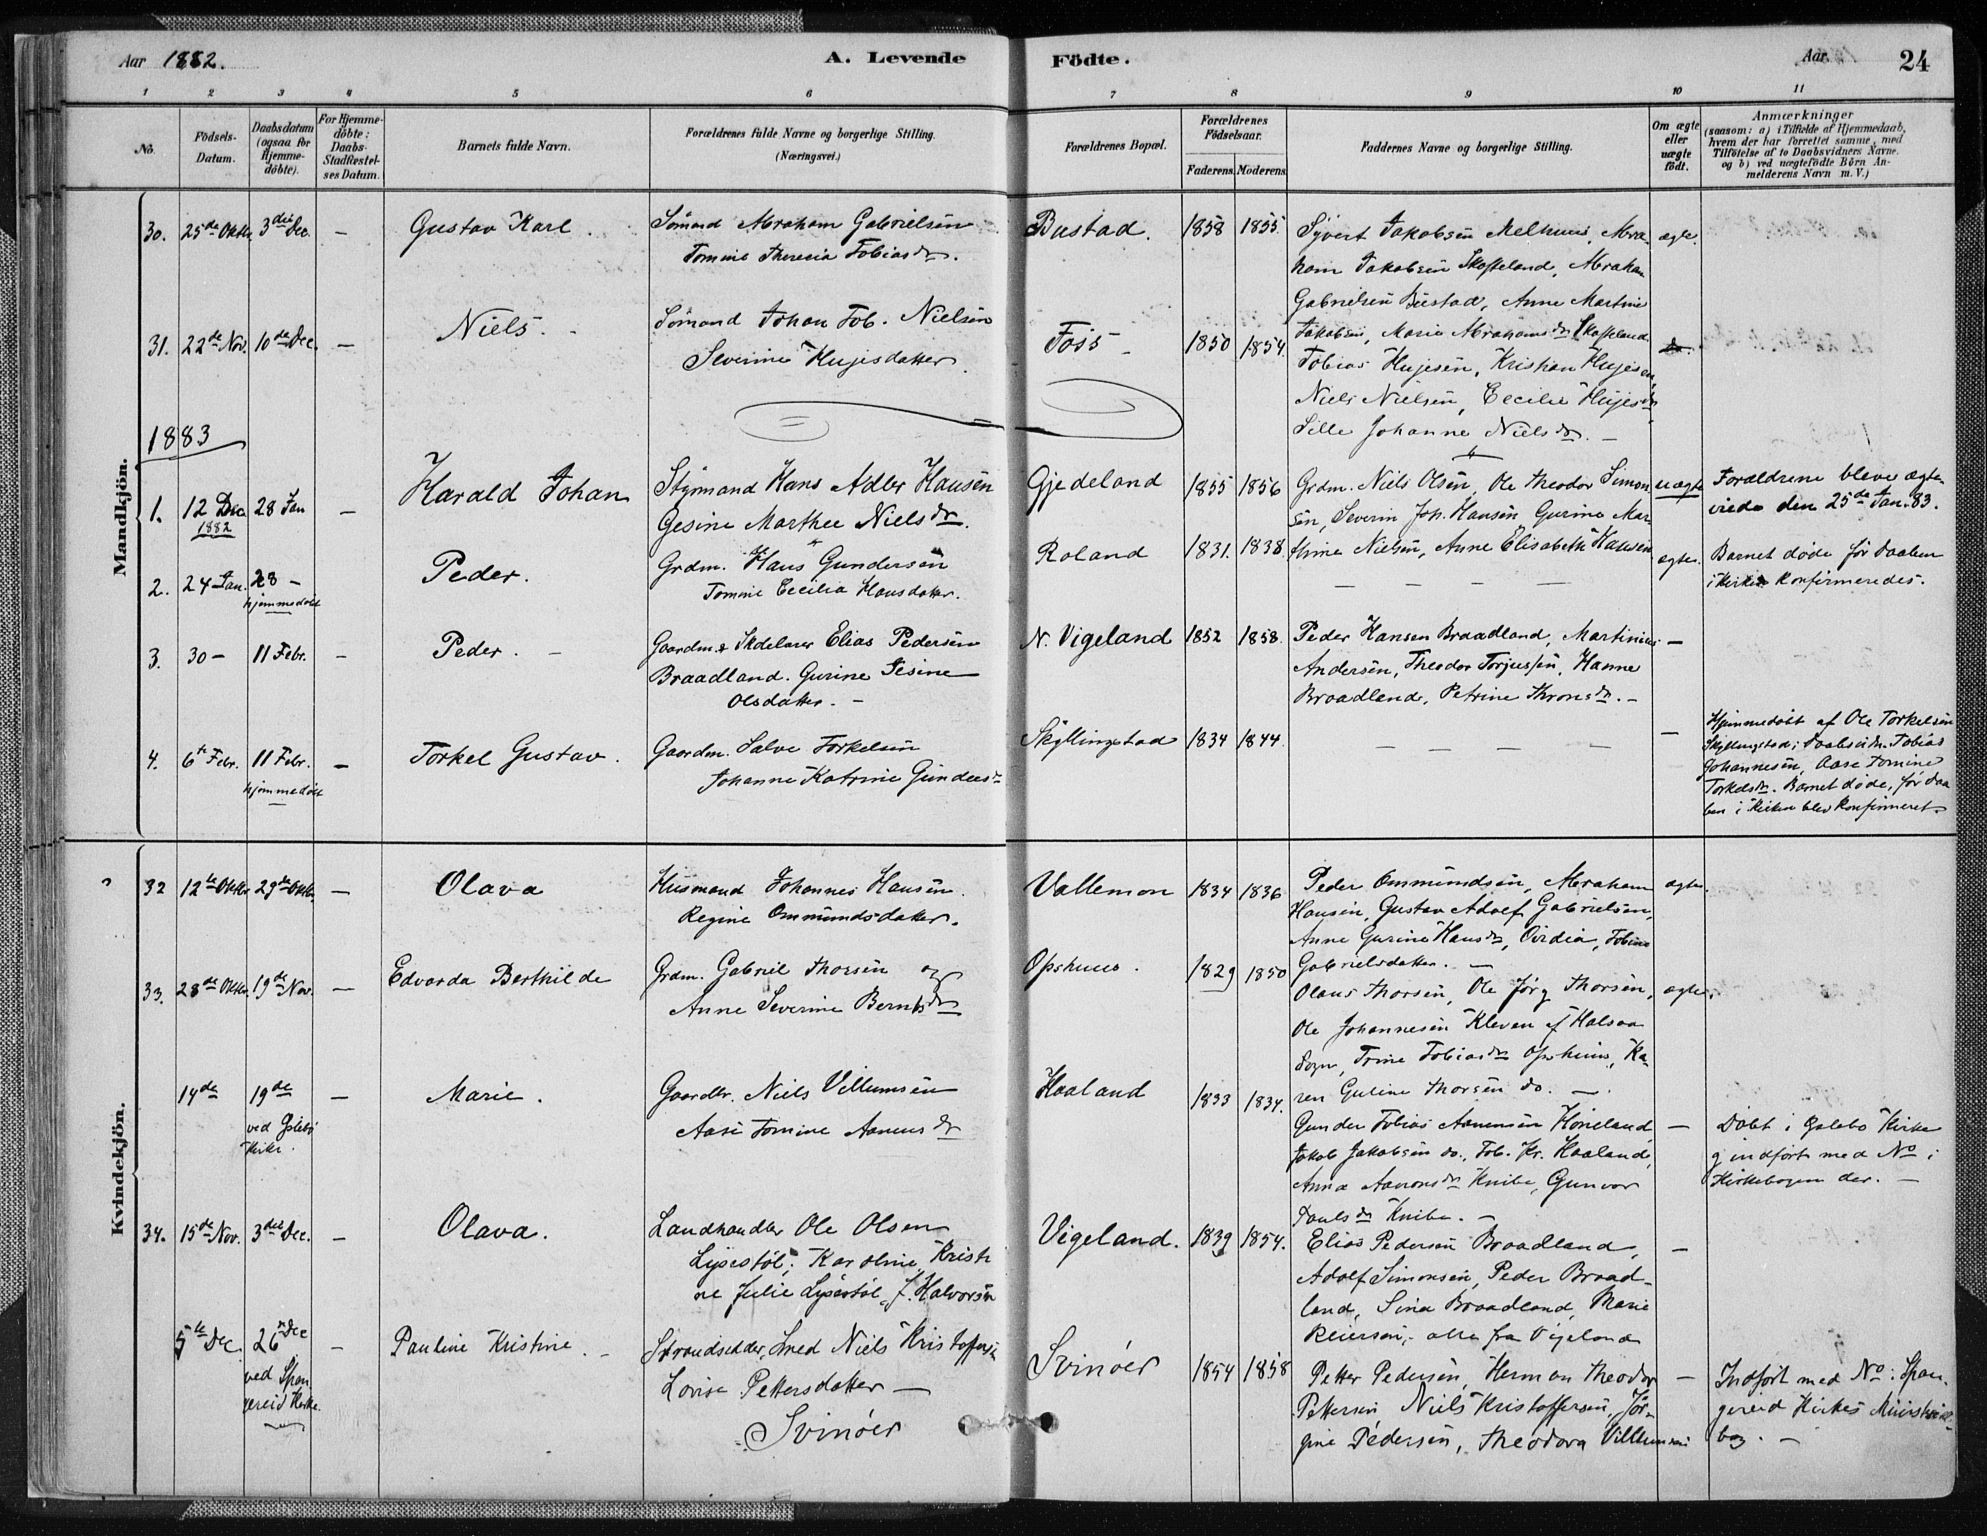 Aar 1882.
A. Levende
Födte.
Aar
24
1 2 3 4 5 6 7 8 9 10 11
No.
Födsels-
Datum.
Daabsdatum
(ogsaa for
Hjemme-
døbte).
For Hjemme-
døbte:
Daabs-
Stadfæstel-
ses Datum.
Barnets fulde Navn.
Forældrenes fulde Navne og borgerlige Stilling.
(Næringsvei.)
Forældrenes Bopæl.
Forældrenes
Födselsaar.
Faderens. Moderens.
Faddernes Navne og borgerlige Stilling.
Om ægte
eller
uægte
födt.
Anmærkninger
(saasom: a) i Tilfælde af Hjemmedaab,
hvem der har forrettet samme, med
Tilføielse af to Daabsvidners Navne.
og b) ved uægtefödte Börn An-
melderens Navn m. V.)
Mandkjön.
30. 25de Oktbr. 3die Dec. — Gustav Karl.
Sömand Abraham Gabrielsen
Tomine Theresia Tobiasdr.
Bustad. 1858 1855.
Syvert Jakobsen Melhuus, Abra-
ham Jakobsen Skofteland, Abraham
Gabrielsen Bustad, Anne Martine
Jakobsen, Marie Abrahamsdr Skofteland
ægte.
31. 22de Nov. 10de Dec. — Niels.
Sömand Johan Tob. Nielsen
Severine Hujesdatter.
Foss 1850 1854.
Tobias Hujesen, Kristian Hujesen,
Niels Nielsen, Cecilie Hujesdr
Sille Johanne Nielsdr. —
1883
1. 12 Dec. 1882 28 Jan — Harald Johan
Styrmand Hans Adler Hansen
Gesine Marthee Nielsdr.
Gjedeland 1855 1856
Grdm. Niels Olsen, Ole Theodor Simon-
sen, Severin Joh. Hansen Gurine Mar-
thine Nielsen, Anne Elisabeth Hansen
uægte
Forældrene bleve ægte-
viede den 25de Jan. 83.
2. 24 Jan. 28 — hjemmedøbt Peder.
Grdm. Hans Gundersen
Tomine Cecilia Hansdatter.
Roland 1831. 1838.
— — — —
ægte.
Barnet døde før Daaben
i Kirken konfirmeredes.
3. 30 — 11 Febr. — Peder. —
Gaardm. & Skolelærer Elias Pedersen
Braadland. Gurine Jesine
Olsdatter. —
N. Vigeland 1852 1858.
Peder Hansen Braadland, Martinius
Andersen, Theodor Torjussen, Hanne
Braadland, Petrine Thronsdr. —
—
4. 6te Febr. 11 Febr. hjemmedøbt — Torkel Gustav.
Gaardm. Salve Torkelsen
Johanne Katrine Gundersdr
Skyllingstad 1834 1844.
— — — —
—
Hjemmedöbt af Ole Torkelsen
Skyllingstad; Daabsvidn. Tobias
Johannesen, Aase Tomine
Torkelsdr. Barnet døde, før Daa-
ben i Kirken blev konfirmeret.
Kvindekjön.
32 12te Oktbr. 29de Oktbr. — Olava
Husmand Johannes Hansen.
Regine Ommundsdatter.
Vallemon 1834 1836
Peder Ommundsen, Abraham
Hansen, Gustav Adolf Gabrielsen,
Anne Gurine Hansdr, Tobine
Gabrielsdatter. —
ægte.
33. 28de Oktbr. 19de Nov. — Edvarda Berthilde
Grdm. Gabriel Thorsen og
Anne Severine Berntsdr
Opshuus. 1829 1850
Olaus Thorsen, Ole Jörg Thorsen,
Ole Johannesen Kleven af Halsaa
Sogn, Trine Tobiasdr Opshuus, Ka-
ren Guline Thorsen do. —
ægte.
14de 19de ved Holebö Kirke. — Marie.
Gaardbr. Niels Villumsen
Aase Tomine Aanensdr
Haaland 1833 1834.
Gunder Tobias Aanensen Höieland
Jakob Jakobsen do., Tob. Kr. Haaland,
Anna Aaronsdr Knibe, Gunvor
Paulsdr Knibe. —
—
Döbt i Holebö Kirke
og indfört med No i
Kirkebogen der. —
34. 15de Nov. 3die Dec. — Olava.
Landhandler Ole Olsen
Lysestøl; Karoline Kristi
ne Julie Lysestøl, f. Halvorsen
Vigeland. 1839 1854.
Elias Pedersen Braadland,
Adolf Simonsen, Peder Braad-
land, Sina Braadland, Marie
Reiersen, alle fra Vigeland
—
5te Dec. 26de Dec ved Span- gereid Kirke. — Pauline Kristine. —
Strandsidder, Smed Niels Kristoffersen
Lovise Pettersdatter —
Svinöer
Svinöer 1854 1858
Petter Pedersen, Herman Theodor
Pettersen Niels Kristoffersen, Jör-
gine Pedersen, Theodora Villumsen
—
Indfört med No i Span-
gereid Kirkes Ministerial-
bog. —